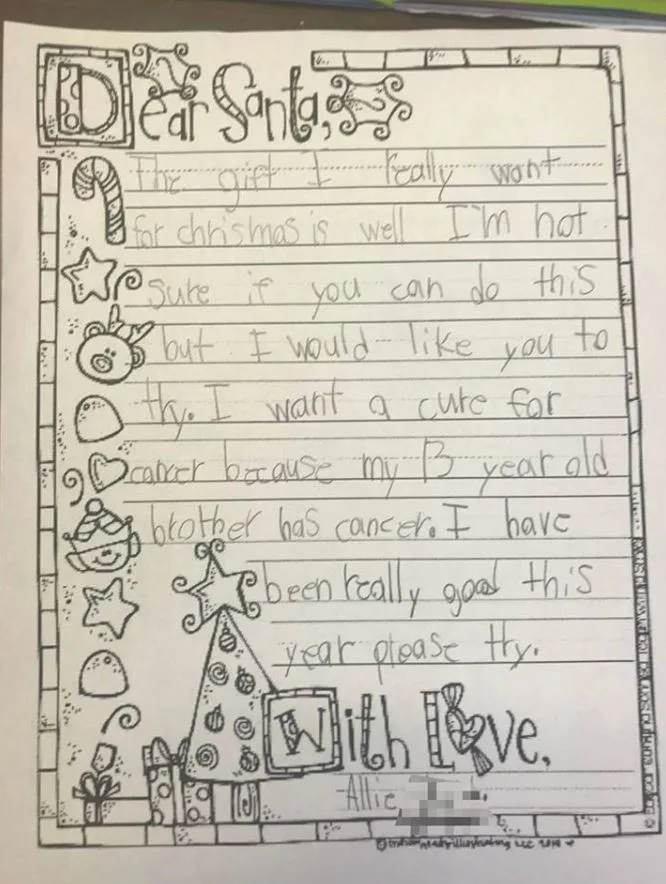 Dear Santa,
The gift I really want
for christmas is well I'm not
sure if you can do this
but I would like you to
try. I want a cure for
cancer because my 13 year old
brother has cancer. I have
been really good this
year please try.
With Love,
Allie